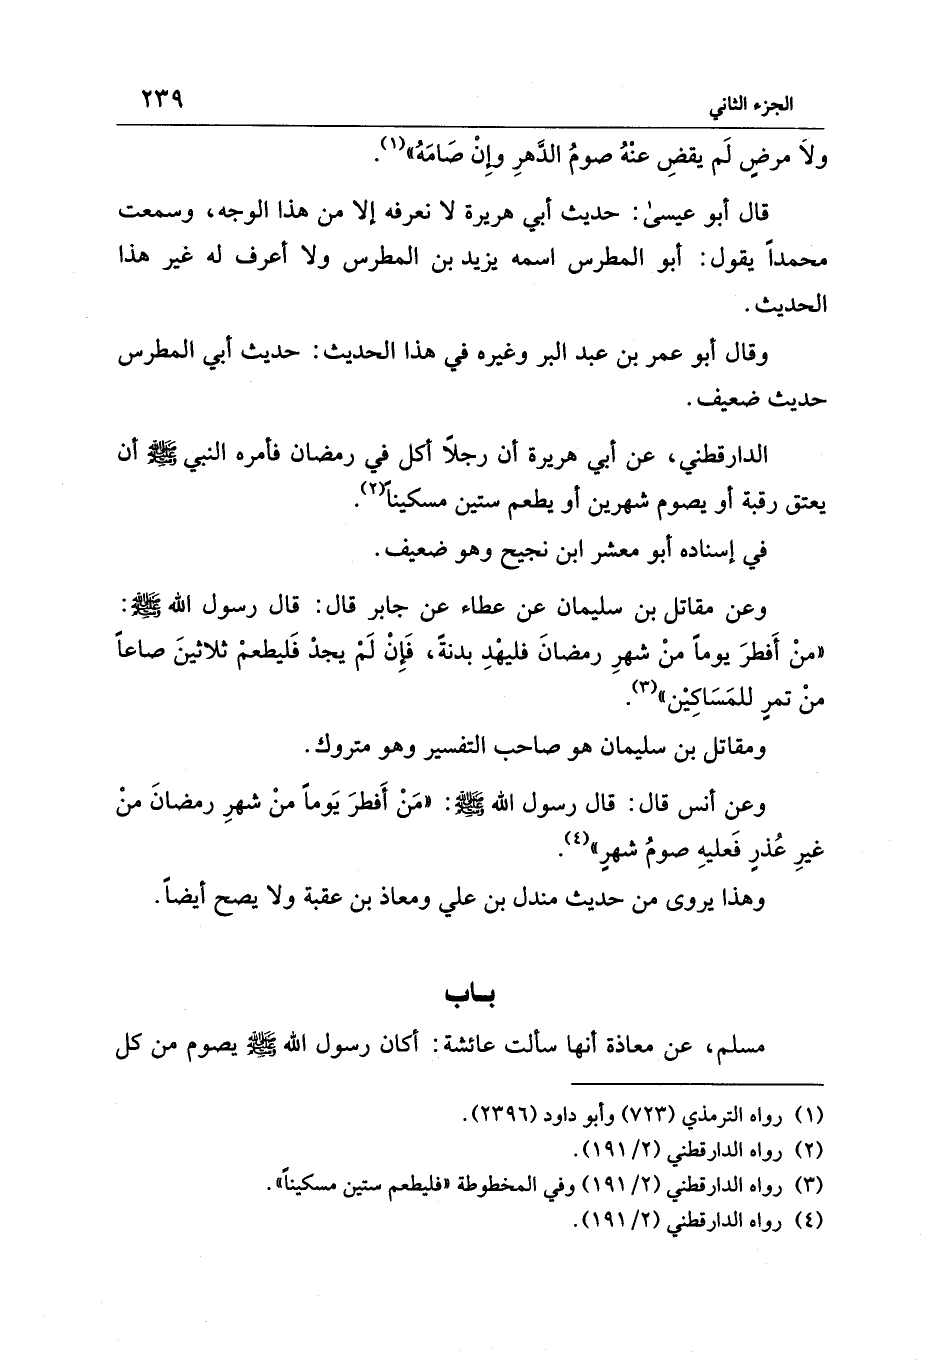 الجزء الثاني ٢٣٩
ولاَ مرضٍ لَم يقضِ عنْهُ صومُ الدَّهرِ وإنْ صَامَهُ»(١).
قال أبو عيسىٰ: حديث أبي هريرة لا نعرفه إلا من هذا الوجه، وسمعت
محمداً يقول: أبو المطرس اسمه يزيد بن المطرس ولا أعرف له غير هذا
الحديث.
وقال أبو عمر بن عبد البر وغيره في هذا الحديث: حديث أبي المطرس
حديث ضعيف.
الدارقطني، عن أبي هريرة أن رجلاً أكل في رمضان فأمره النبي ﷺ أن
يعتق رقبة أو يصوم شهرين أو يطعم ستين مسكيناً(٢).
في إسناده أبو معشر ابن نجيح وهو ضعيف.
وعن مقاتل بن سليمان عن عطاء عن جابر قال: قال رسول الله ﷺ:
«منْ أَفطرَ يوماً منْ شهرِ رمضانَ فليهْدِ بدنةً، فَإِنْ لَمْ يجدْ فَليطعمْ ثلاثينَ صاعاً
منْ تمرٍ للمَسَاكِيْن»(٣).
ومقاتل بن سليمان هو صاحب التفسير وهو متروك.
وعن أنس قال: قال رسول الله ﷺ: «مَنْ أَفطرَ يَوماً منْ شهرِ رمضانَ منْ
غيرِ عُذرٍ فَعليهِ صومُ شهرٍ»(٤).
وهذا يروى من حديث مندل بن علي ومعاذ بن عقبة ولا يصح أيضاً.
بـاب
مسلم، عن معاذة أنها سألت عائشة: أكان رسول الله ﷺ يصوم من كل
(١) رواه الترمذي (٧٢٣) وأبو داود (٢٣٩٦).
(٢) رواه الدارقطني (٢/ ١٩١).
(٣) رواه الدارقطني (٢/ ١٩١) وفي المخطوطة «فليطعم ستين مسكيناً».
(٤) رواه الدارقطني (٢/ ١٩١).